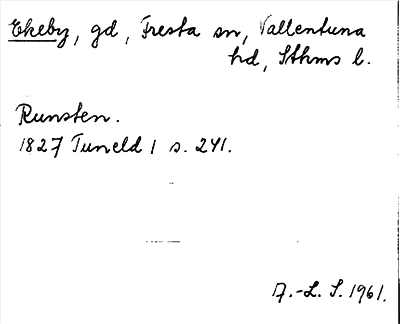 Ekeby, gd, Fresta sn, Vallentuna
hd, Sthms l.
Runsten.
1827 Tuneld 1 s. 241.
A.-L. S. 1961.